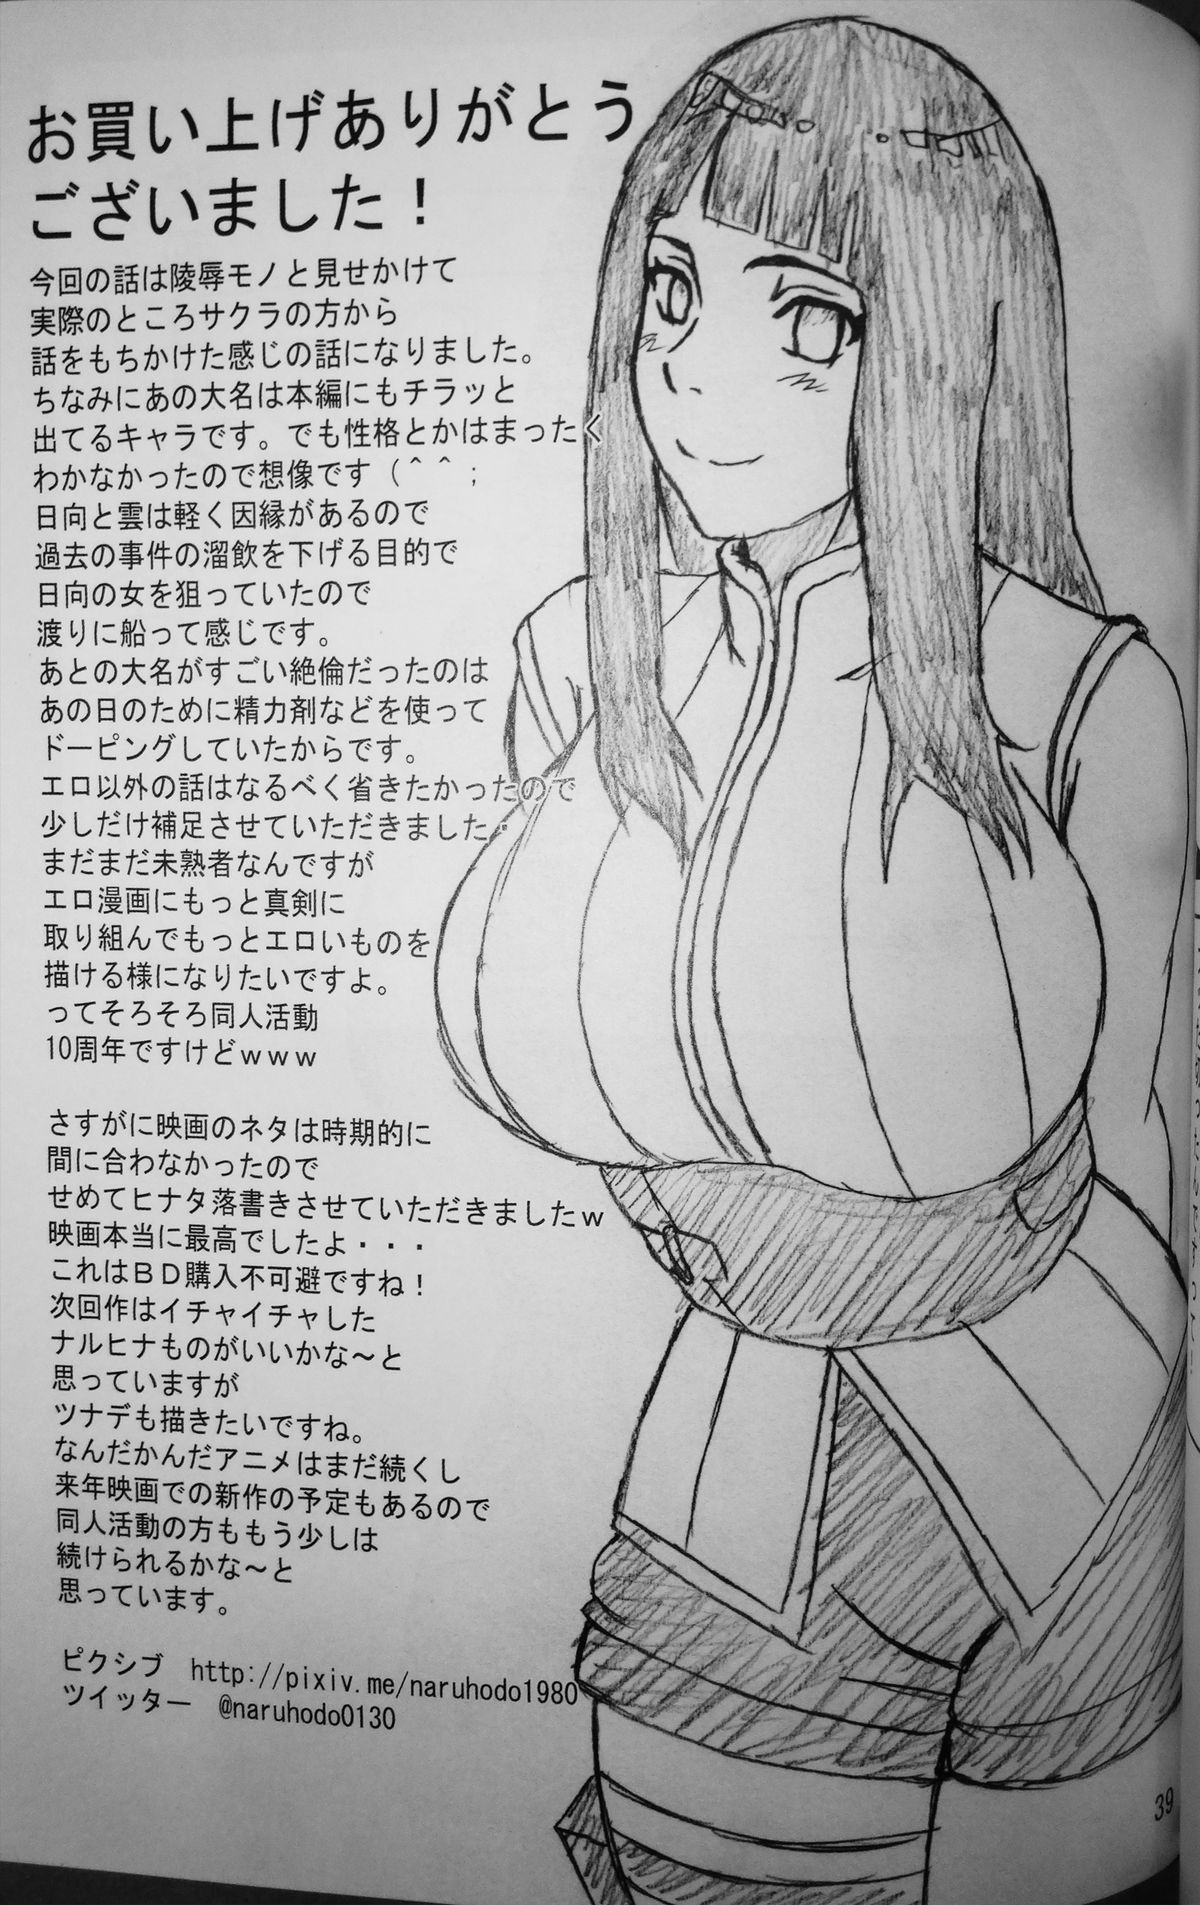 お買い上げありがとう
ございました！
今回の話は陵辱モノと見せかけて
実際のところサクラの方から
話をもちかけた感じの話になりました。
ちなみにあの大名は本編にもチラッと
出てるキャラです。でも性格とかはまったく
わかなかったので想像です（＾＾；
日向と雲は軽く因縁があるので
過去の事件の溜飲を下げる目的で
日向の女を狙っていたので
渡りに船って感じです。
あとの大名がすごい絶倫だったのは
あの日のために精力剤などを使って
ドーピングしていたからです。
エロ以外の話はなるべく省きたかったので
少しだけ補足させていただきました・
まだまだ未熟者なんですが
エロ漫画にもっと真剣に
取り組んでもっとエロいものを
描ける様になりたいですよ。
ってそろそろ同人活動
10周年ですけどｗｗｗ
さすがに映画のネタは時期的に
間に合わなかったので
せめてヒナタ落書きさせていただきましたｗ
映画本当に最高でしたよ・・・
これはＢＤ購入不可避ですね！
次回作はイチャイチャした
ナルヒナものがいいかな～と
思っていますが
ツナデも描きたいですね。
なんだかんだアニメはまだ続くし
来年映画での新作の予定もあるので
同人活動の方ももう少しは
続けられるかな～と
思っています。
ピクシブ　http://pixiv.me/naruhodo1980
ツイッター　@naruhodo0130
39